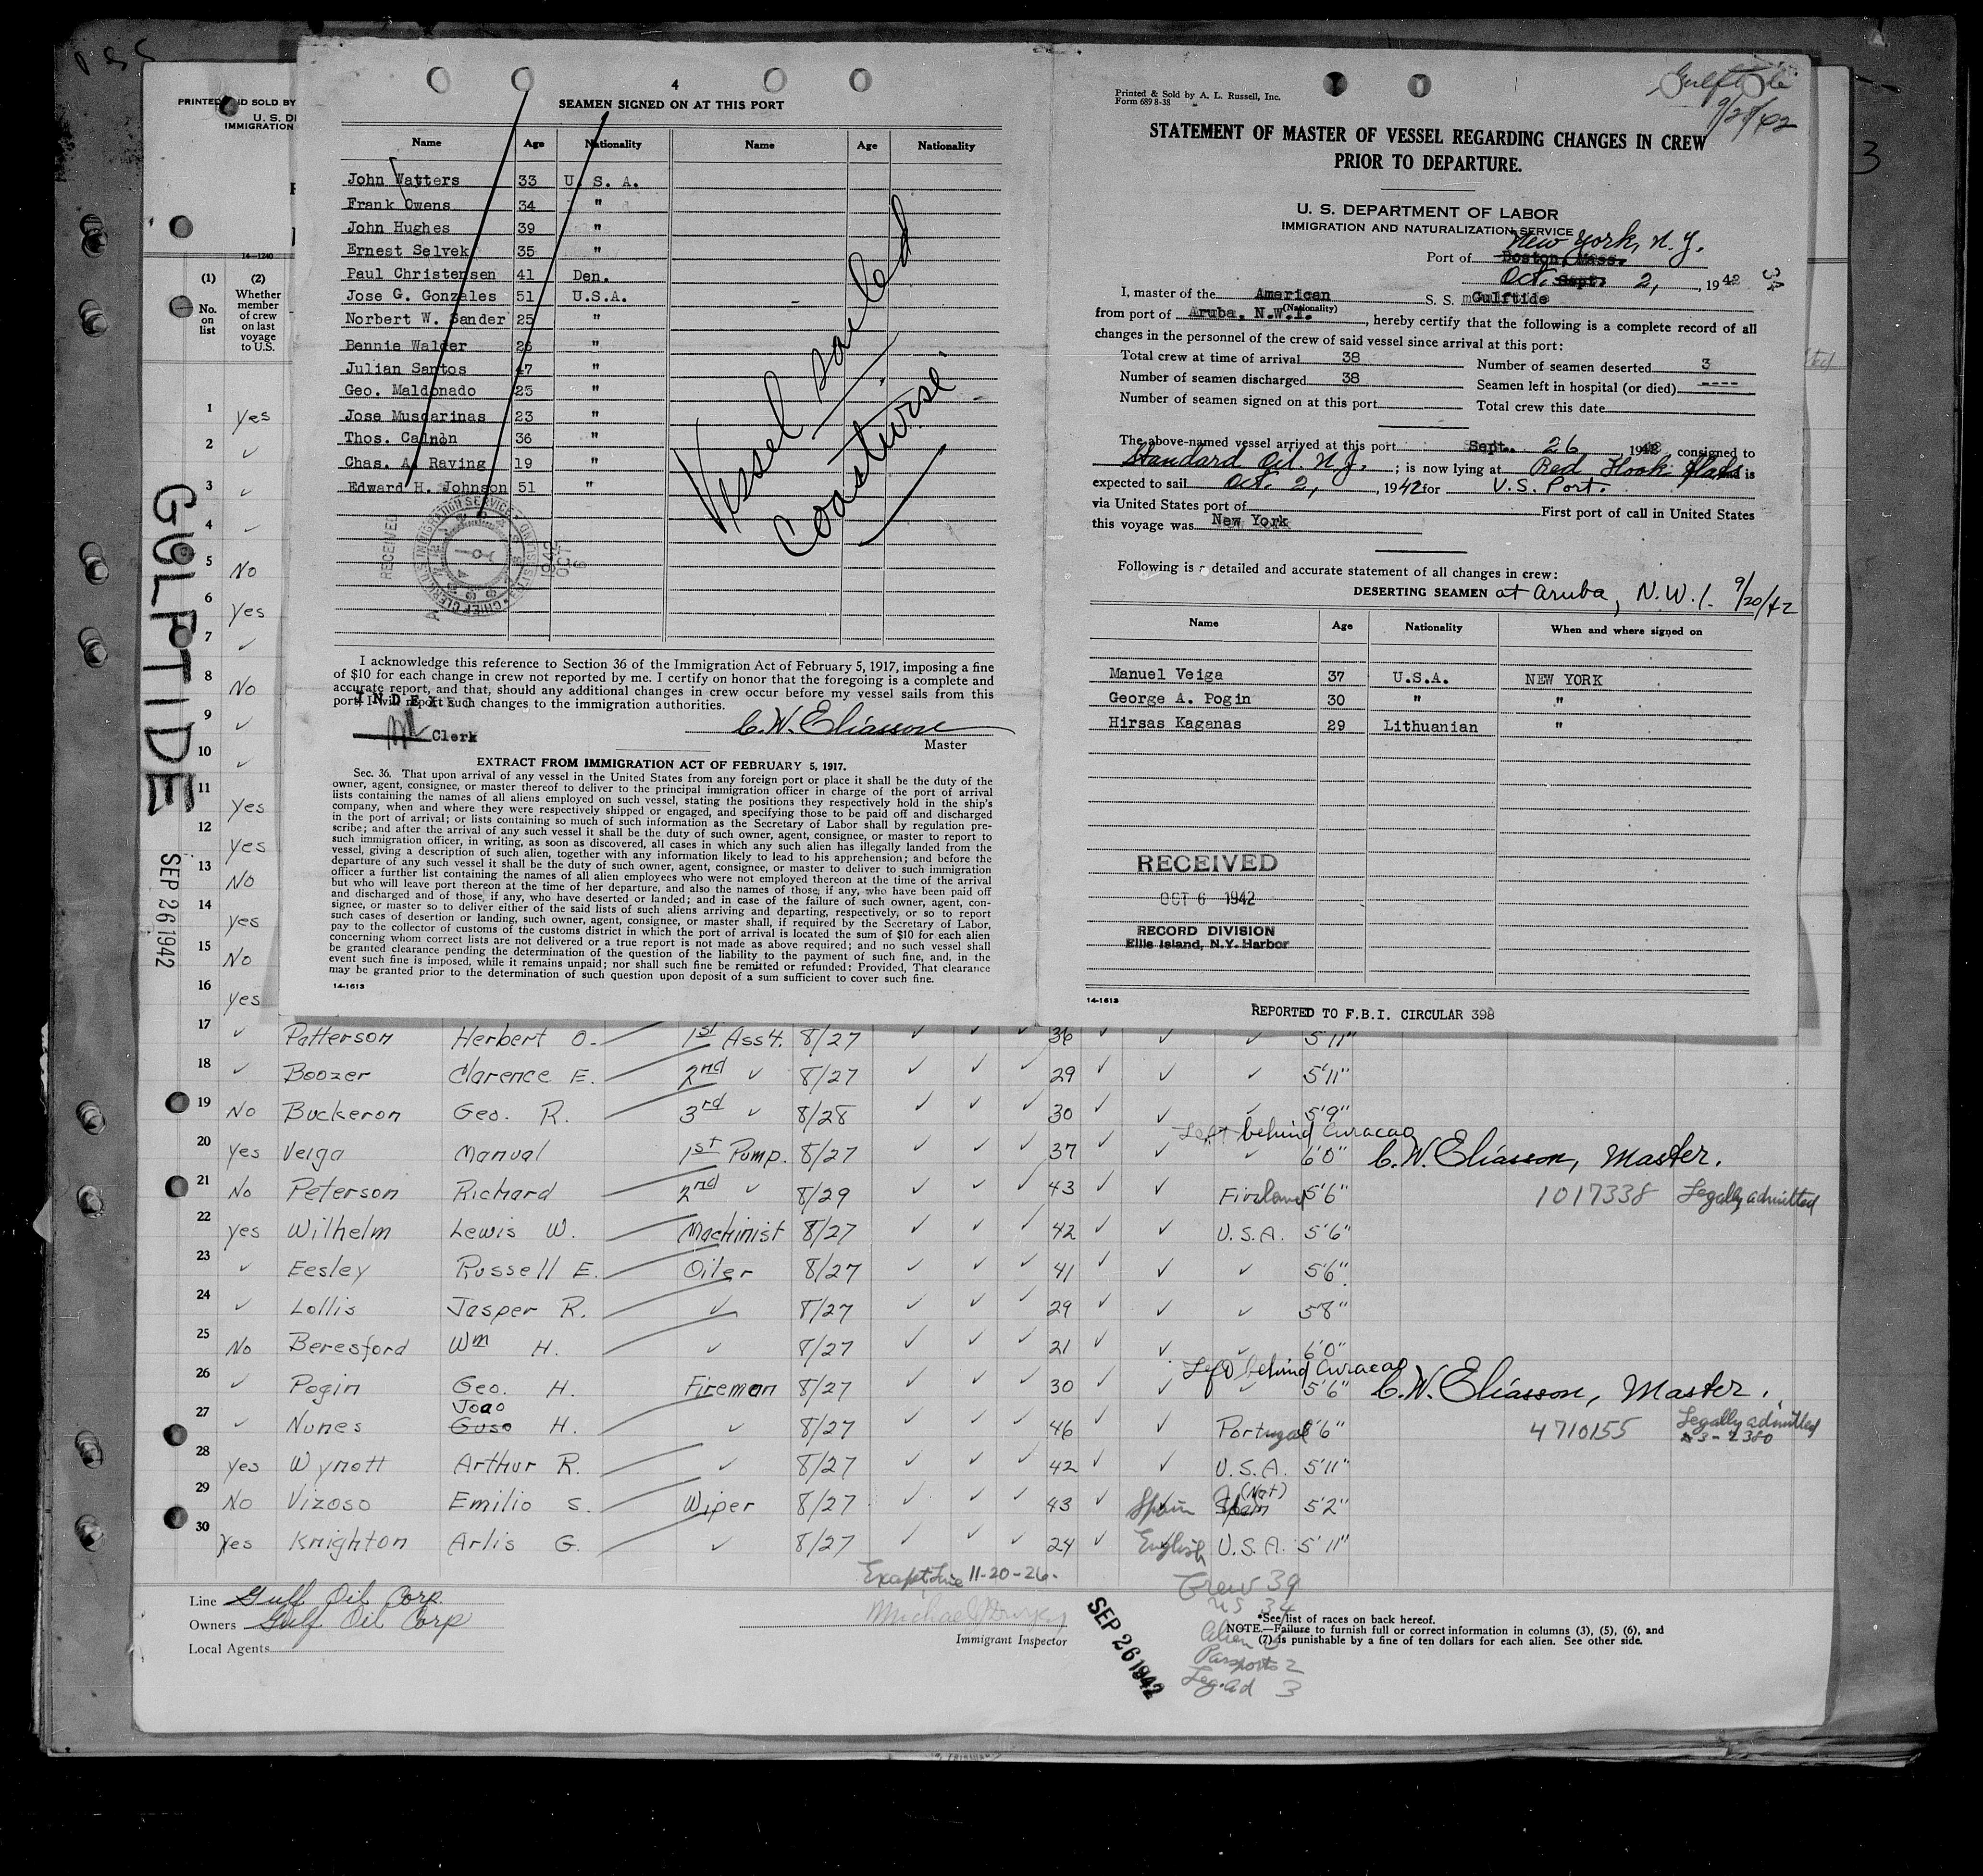 4
SEAMEN SIGNED ON AT THIS PORT
Name Age Nationality Name Age Nationality
John Watters 33 U. S. A.
Frank Owens 34 "
John Hughes 39 "
Ernest Selvek 35 "
Paul Christensen 41 Den.
Jose G. Gonzales 51 U.S.A.
Norbert W. Sander 25 "
Bennie Walder 26 "
Julian Santos 47 "
Geo. Maldonado 25 "
Jose Muscarinas 23 "
Thos. Cannon 36 "
Chas. A. Raving 19 "
Edward H. Johnson 51 "
Vessel sailed
Coastwise.
RECEIVED
I acknowledge this reference to Section 36 of the Immigration Act of February 5, 1917, imposing a fine
of $10 for each change in crew not reported by me. I certify on honor that the foregoing is a complete and
accurate report, and that, should any additional changes in crew occur before my vessel sails from this
port, I will report such changes to the immigration authorities.
INDEXED
Clerk
C.W. Eliasson
Master
EXTRACT FROM IMMIGRATION ACT OF FEBRUARY 5, 1917.
Sec. 36. That upon arrival of any vessel in the United States from any foreign port or place it shall be the duty of the
owner, agent, consignee, or master thereof to deliver to the principal immigration officer in charge of the port of arrival
lists containing the names of all aliens employed on such vessel, stating the positions they respectively hold in the ship's
company, when and where they were respectively shipped or engaged, and specifying those to be paid off and discharged
in the port of arrival; or lists containing so much of such information as the Secretary of Labor shall by regulation pre-
scribe; and after the arrival of any such vessel it shall be the duty of such owner, agent, consignee, or master to report to
such immigration officer, in writing, as soon as discovered, all cases in which any such alien has illegally landed from the
vessel, giving a description of such alien, together with any information likely to lead to his apprehension; and before the
departure of any such vessel it shall be the duty of such owner, agent, consignee, or master to deliver to such immigration
officer a further list containing the names of all alien employees who were not employed thereon at the time of the arrival
but who will leave port thereon at the time of her departure, and also the names of those, if any, who have been paid off
and discharged and of those, if any, who have deserted or landed; and in case of the failure of such owner, agent, con-
signee, or master so to deliver either of the said lists of such aliens arriving and departing, respectively, or so to report
such cases of desertion or landing, such owner, agent, consignee, or master shall, if required by the Secretary of Labor,
pay to the collector of customs of the customs district in which the port of arrival is located the sum of $10 for each alien
concerning whom correct lists are not delivered or a true report is not made as above required; and no such vessel shall
be granted clearance pending the determination of the question of the liability to the payment of such fine, and, in the
event such fine is imposed, while it remains unpaid; nor shall such fine be remitted or refunded: Provided, That clearance
may be granted prior to the determination of such question upon deposit of a sum sufficient to cover such fine.
14-1613
Printed & Sold by A. L. Russell, Inc.
Form 689 8-38
Gulftide
9/26/42
STATEMENT OF MASTER OF VESSEL REGARDING CHANGES IN CREW
PRIOR TO DEPARTURE.
U. S. DEPARTMENT OF LABOR
IMMIGRATION AND NATURALIZATION SERVICE
New York, N.Y.
Port of Boston, Mass.
Oct. Sept. 2, , 1942
34
I, master of the American S. S. Gulftide
(Nationality)
from port of Aruba, N.W.I. , hereby certify that the following is a complete record of all
changes in the personnel of the crew of said vessel since arrival at this port:
Total crew at time of arrival 38 Number of seamen deserted 3
Number of seamen discharged 38 Seamen left in hospital (or died) ----
Number of seamen signed on at this port Total crew this date
The above-named vessel arrived at this port Sept. 26 1942 consigned to
Standard Oil N.J. ; is now lying at Red Hook Flats and is
expected to sail Oct. 2, , 1942 for U.S. Port.
via United States port of First port of call in United States
this voyage was New York
Following is a detailed and accurate statement of all changes in crew:
DESERTING SEAMEN at Aruba, N.W.I. 9/20/42
Name Age Nationality When and where signed on
Manuel Veiga 37 U.S.A. NEW YORK
George A. Pogin 30 " "
Hirsas Kaganas 29 Lithuanian "
RECEIVED
OCT 6 1942
RECORD DIVISION
Ellis Island, N.Y. Harbor
14-1613
REPORTED TO F.B.I. CIRCULAR 398
3
PRINTED AND SOLD BY
U. S. D
IMMIGRATION
14-1240
(1) (2)
No. on list
Whether member of crew on last voyage to U.S.
GULFTIDE
SEP 26 1942
1 Yes
2 ✓
3 ✓
4 ✓
5 No
6 Yes
7 ✓
8 No
9 ✓
10 ✓
11 Yes
12 Yes
13 No
14 Yes
15 No
16 Yes
17 ✓ Patterson Herbert O. 1st Asst. 8/27 ✓ ✓ ✓ 36 ✓ ✓ ✓ 5'11"
18 ✓ Boozer Clarence E. 2nd ✓ 8/27 ✓ ✓ ✓ 29 ✓ ✓ ✓ 5'11"
19 No Buckeron Geo. R. 3rd ✓ 8/28 ✓ ✓ ✓ 30 ✓ ✓ ✓ 5'9"
Left behind Curacao
20 Yes Veiga Manual 1st Pump. 8/27 ✓ ✓ ✓ 37 ✓ ✓ ✓ 6'0" C.W. Eliasson, Master.
21 No Peterson Richard 2nd ✓ 8/29 ✓ ✓ ✓ 43 ✓ ✓ Finland 5'6" 1017338 Legally admitted
22 Yes Wilhelm Lewis W. Machinist 8/27 ✓ ✓ ✓ 42 ✓ ✓ U.S.A. 5'6"
23 ✓ Eesley Russell E. Oiler 8/27 ✓ ✓ ✓ 41 ✓ ✓ ✓ 5'6"
24 ✓ Lollis Jasper R. ✓ 8/27 ✓ ✓ ✓ 29 ✓ ✓ ✓ 5'8"
25 No Beresford Wm H. ✓ 8/27 ✓ ✓ ✓ 21 ✓ ✓ ✓ 6'0"
Left behind Curacao
26 ✓ Pogin Geo. H. Fireman 8/27 ✓ ✓ ✓ 30 ✓ ✓ ✓ 5'6" C.W. Eliasson, Master.
Joao
27 ✓ Nunes Guso H. ✓ 8/27 ✓ ✓ ✓ 46 ✓ ✓ Portugal 5'6" 4710155 Legally admitted
28 Yes Wynott Arthur R. ✓ 8/27 ✓ ✓ ✓ 42 ✓ ✓ U.S.A. 5'11"
(Nat)
29 No Vizoso Emilio S. Wiper 8/27 ✓ ✓ ✓ 43 ✓ Spain Spain 5'2"
30 Yes Knighton Arlis G. ✓ 8/27 ✓ ✓ ✓ 24 ✓ English U.S.A. 5'11"
Except Line 11-20-26.
Line Gulf Oil Corp.
Owners Gulf Oil Corp
Local Agents
Immigrant Inspector
SEP 26 1942
Crew 39
US 34
Alien
Passports 2
Leg. ad 3
*See list of races on back hereof.
NOTE.—Failure to furnish full or correct information in columns (3), (5), (6), and
(7) is punishable by a fine of ten dollars for each alien. See other side.